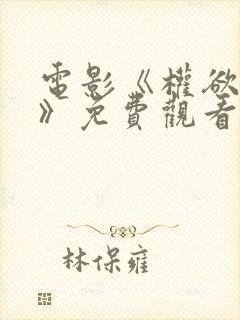 電影《權欲
》免費觀看
林保雍